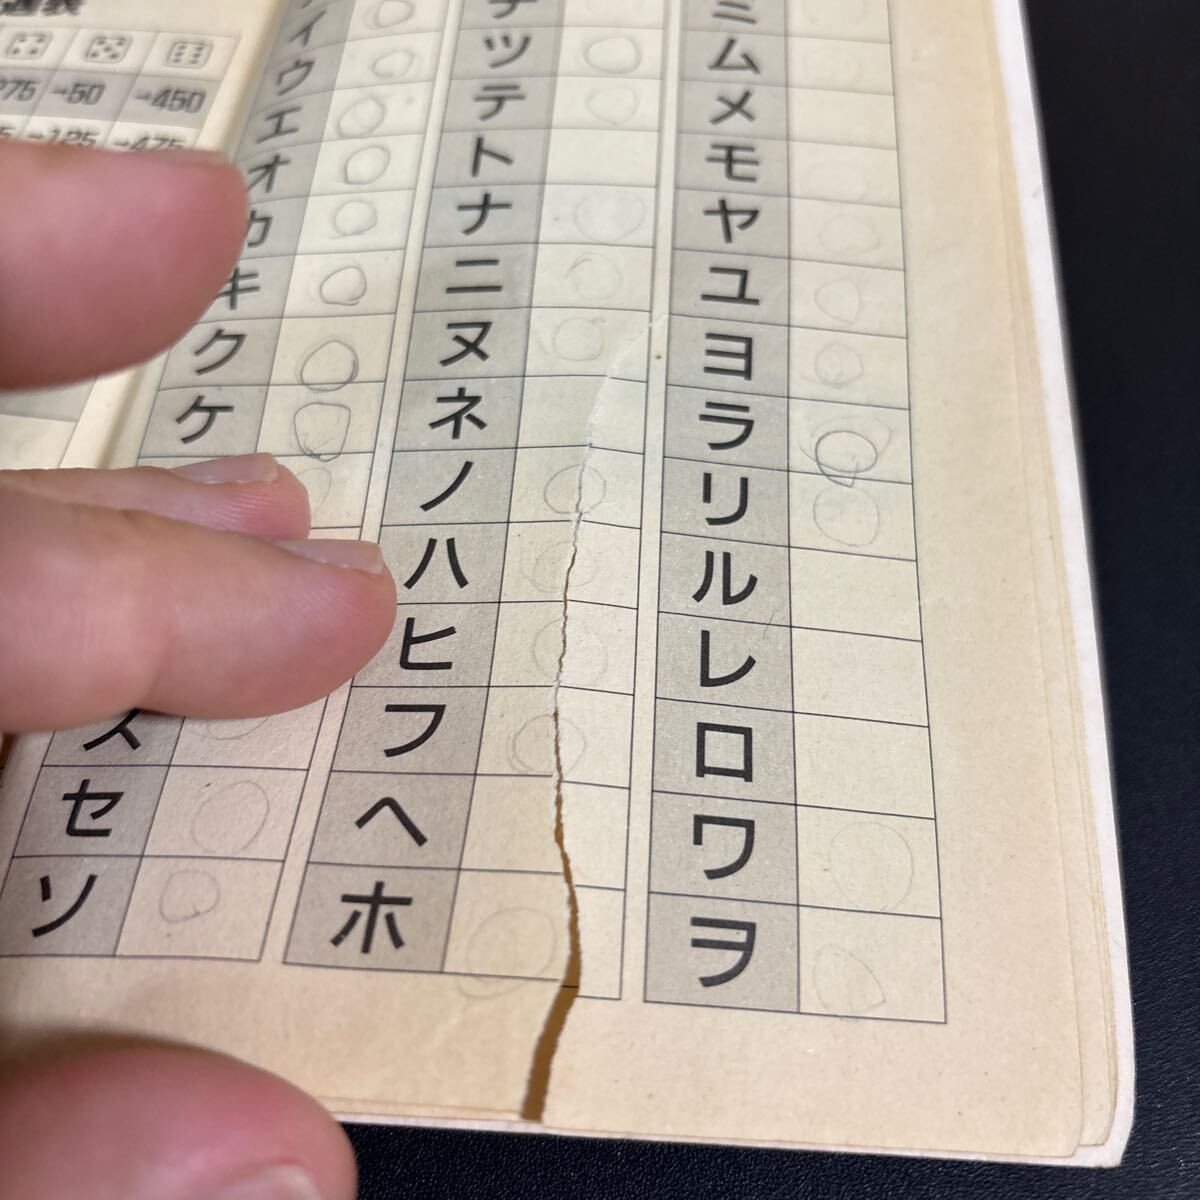 →50
→450
イ
ウ
エ
オ
カ
キ
ク
ケ
ス
セ
ソ
チ
ツ
テ
ト
ナ
ニ
ヌ
ネ
ノ
ハ
ヒ
フ
ヘ
ホ
ミ
ム
メ
モ
ヤ
ユ
ヨ
ラ
リ
ル
レ
ロ
ワ
ヲ